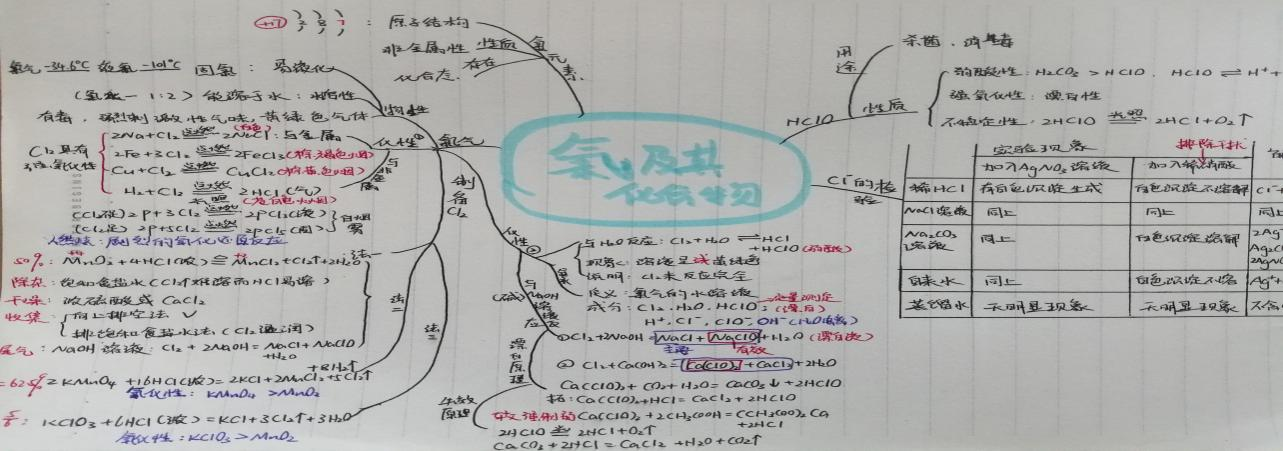 氯及其
化合物
+17 2 8 7 : 原子结构
非金属性 性质
化合态 存在
氯元素
氯气 -34.6℃ 液氯 -101℃ 固氯 : 易液化
(氯水 — 1:2) 能溶于水 : 水溶性
有毒，强烈刺激性气味，黄绿色气体
物性
氯气
化性①
Cl₂具有
强氧化性
2Na+Cl₂ 点燃 2NaCl : 与金属
2Fe+3Cl₂ 点燃 2FeCl₃ (棕褐色烟)
Cu+Cl₂ 点燃 CuCl₂ (棕黄色烟)
与非金属
H₂+Cl₂ 点燃 2HCl (气)
光照 (苍白色火焰)
(Cl₂不足) 2P+3Cl₂ 点燃 2PCl₃ (液)
(Cl₂足) 2P+5Cl₂ 点燃 2PCl₅ (固)
白烟
雾
燃烧 : 剧烈的氧化还原反应
制备Cl₂
法一
50% : MnO₂+4HCl(浓) ≜ MnCl₂+Cl₂↑+2H₂O
除杂 : 饱和食盐水 (Cl₂难溶而HCl易溶)
干燥 : 浓硫酸或CaCl₂
收集 : 向上排空法 ✓
排饱和食盐水法
尾气 : NaOH溶液 : Cl₂+2NaOH=NaCl+NaClO
+H₂O
法二
+8H₂O
=62.5% 2KMnO₄+16HCl(浓)=2KCl+2MnCl₂+5Cl₂↑
氧化性 : KMnO₄>MnO₂
法三
5/6 : KClO₃+6HCl(浓)=KCl+3Cl₂↑+3H₂O
氧化性 : KClO₃>MnO₂
化性②
与H₂O反应 : Cl₂+H₂O ⇌ HCl
+HClO (弱酸)
现象 : 溶液呈浅黄绿色
说明 : Cl₂未反应完全
氯水
定义 : 氯气的水溶液
成分 : Cl₂、H₂O、HClO
(漂白)
H⁺, Cl⁻, ClO⁻, OH⁻ (H₂O电离)
与NaOH溶液反应
(碱)
①Cl₂+2NaOH=NaCl+NaClO+H₂O (漂白液)
主要 有效
②Cl₂+Ca(OH)₂=Ca(ClO)₂+CaCl₂+2H₂O
漂白原理
Ca(ClO)₂+CO₂+H₂O=CaCO₃↓+2HClO
拓 : Ca(ClO)₂+2HCl=CaCl₂+2HClO
Ca(ClO)₂+2CH₃COOH=(CH₃COO)₂Ca
+2HClO
失效原理
2HClO 光照 2HCl+O₂↑
CaCO₃+2HCl=CaCl₂+H₂O+CO₂↑
HClO
用途
杀菌、消毒
性质
弱酸性 : H₂CO₃>HClO. HClO ⇌ H⁺+
强氧化性 : 漂白性
不稳定性. 2HClO 光照 2HCl+O₂↑
Cl⁻的检验
实验现象 排除干扰
加入AgNO₃溶液 加入稀硝酸
稀HCl 有白色沉淀生成 白色沉淀不溶解 Cl⁻+
NaCl溶液 同上 同上 同
Na₂CO₃溶液 同上 白色沉淀溶解 2Ag⁺
Ag₂C
2AgN
自来水 同上 白色沉淀不溶 Ag⁺+
蒸馏水 无明显现象 无明显现象 不含